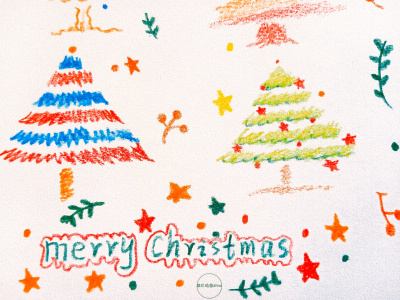 merry Christmas